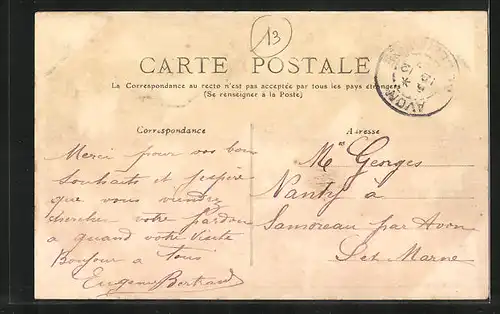 13
CARTE POSTALE
La Correspondance au recto n'est pas acceptée par tous les pays étrangers
(Se renseigner à la Poste)
AVON
Correspondance
Merci pour vos bons
souhaits et j'espère
que vous viendrez
chercher votre pardon
a quand votre visite
Bonjour a tous
Eugene Bertrand
Adresse
Mr Georges
Nanty à
Samoreau par Avon
Set Marne